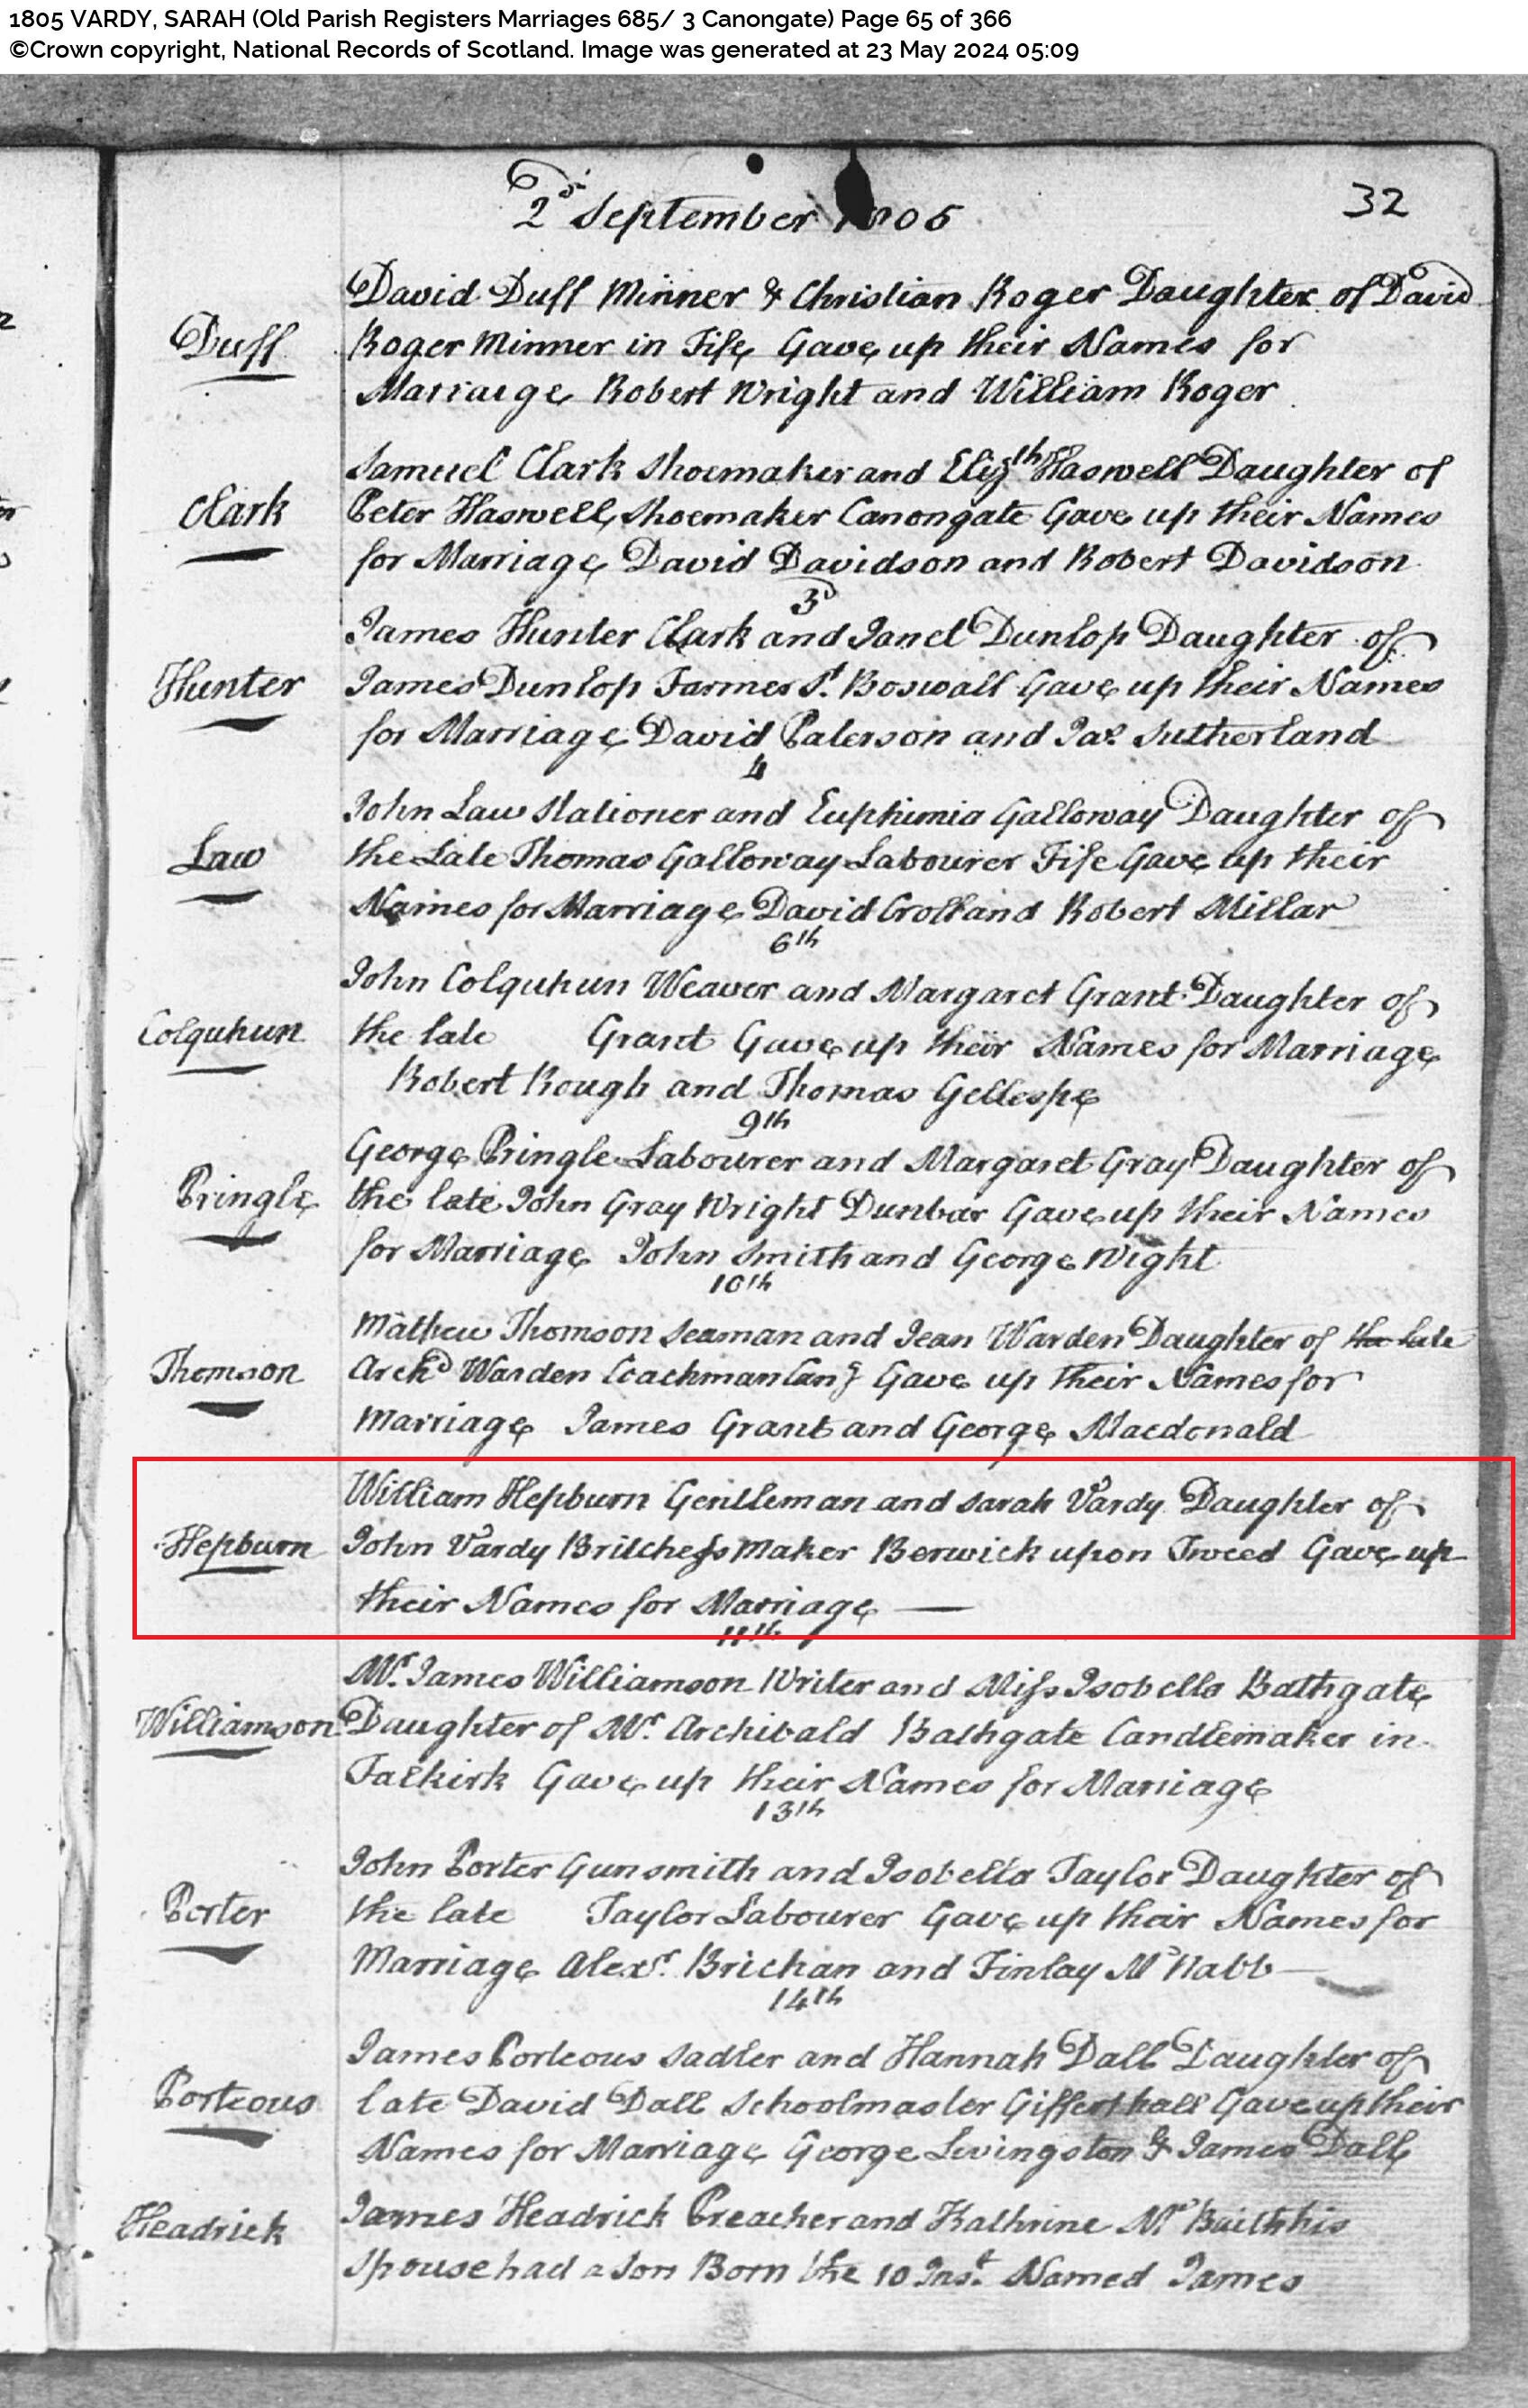 1805 VARDY, SARAH (Old Parish Registers Marriages 685/ 3 Canongate) Page 65 of 366
©Crown copyright, National Records of Scotland. Image was generated at 23 May 2024 05:09
32
2d September 1805
David Duff Minner & Christian Roger Daughter of David
Duff
Roger Minner in Fife Gave up their Names for
Marriage Robert Wright and William Roger
Samuel Clark Shoemaker and Elizth Haswell Daughter of
Clark
Peter Haswell Shoemaker Canongate Gave up their Names
for Marriage David Davidson and Robert Davidson
3d
James Hunter Clark and Janet Dunlop Daughter of
Hunter
James Dunlop Farmer St. Boswall Gave up their Names
for Marriage David Paterson and Jas. Sutherland
4
John Law Stationer and Euphimia Galloway Daughter of
Law
the Late Thomas Galloway Labourer Fife Gave up their
Names for Marriage David Croll and Robert Millar
6th
John Colquhun Weaver and Margaret Grant Daughter of
Colquhun
the late Grant Gave up their Names for Marriage
Robert Rough and Thomas Gellespe
9th
George Pringle Labourer and Margaret Gray Daughter of
Pringle
the late John Gray Wright Dunbar Gave up their Names
for Marriage John Smith and George Wight
10th
Mathew Thomson Seaman and Jean Warden Daughter of the late
Thomson
Archd Warden Coachman Cang Gave up their Names for
Marriage James Grant and George Macdonald
William Hepburn Gentleman and Sarah Vardy Daughter of
Hepburn
John Vardy Britchess Maker Berwick upon Tweed Gave up
their Names for Marriage —
11th
Mr. James Williamson Writer and Miss Isobella Bathgate
Williamson
Daughter of Mr. Archibald Bathgate Candlemaker in
Falkirk Gave up their Names for Marriage
13th
John Porter Gunsmith and Isobella Taylor Daughter of
Porter
the late Taylor Labourer Gave up their Names for
Marriage Alexr. Brichan and Finlay McNabb —
14th
James Porteous Sadler and Hannah Dall Daughter of
Porteous
late David Dall Schoolmaster Gifferthall Gave up their
Names for Marriage George Levingston & James Dall
Headrick
James Headrick Preacher and Kathrine Mc his
Spouse had a Son Born the 10 Inst. Named James